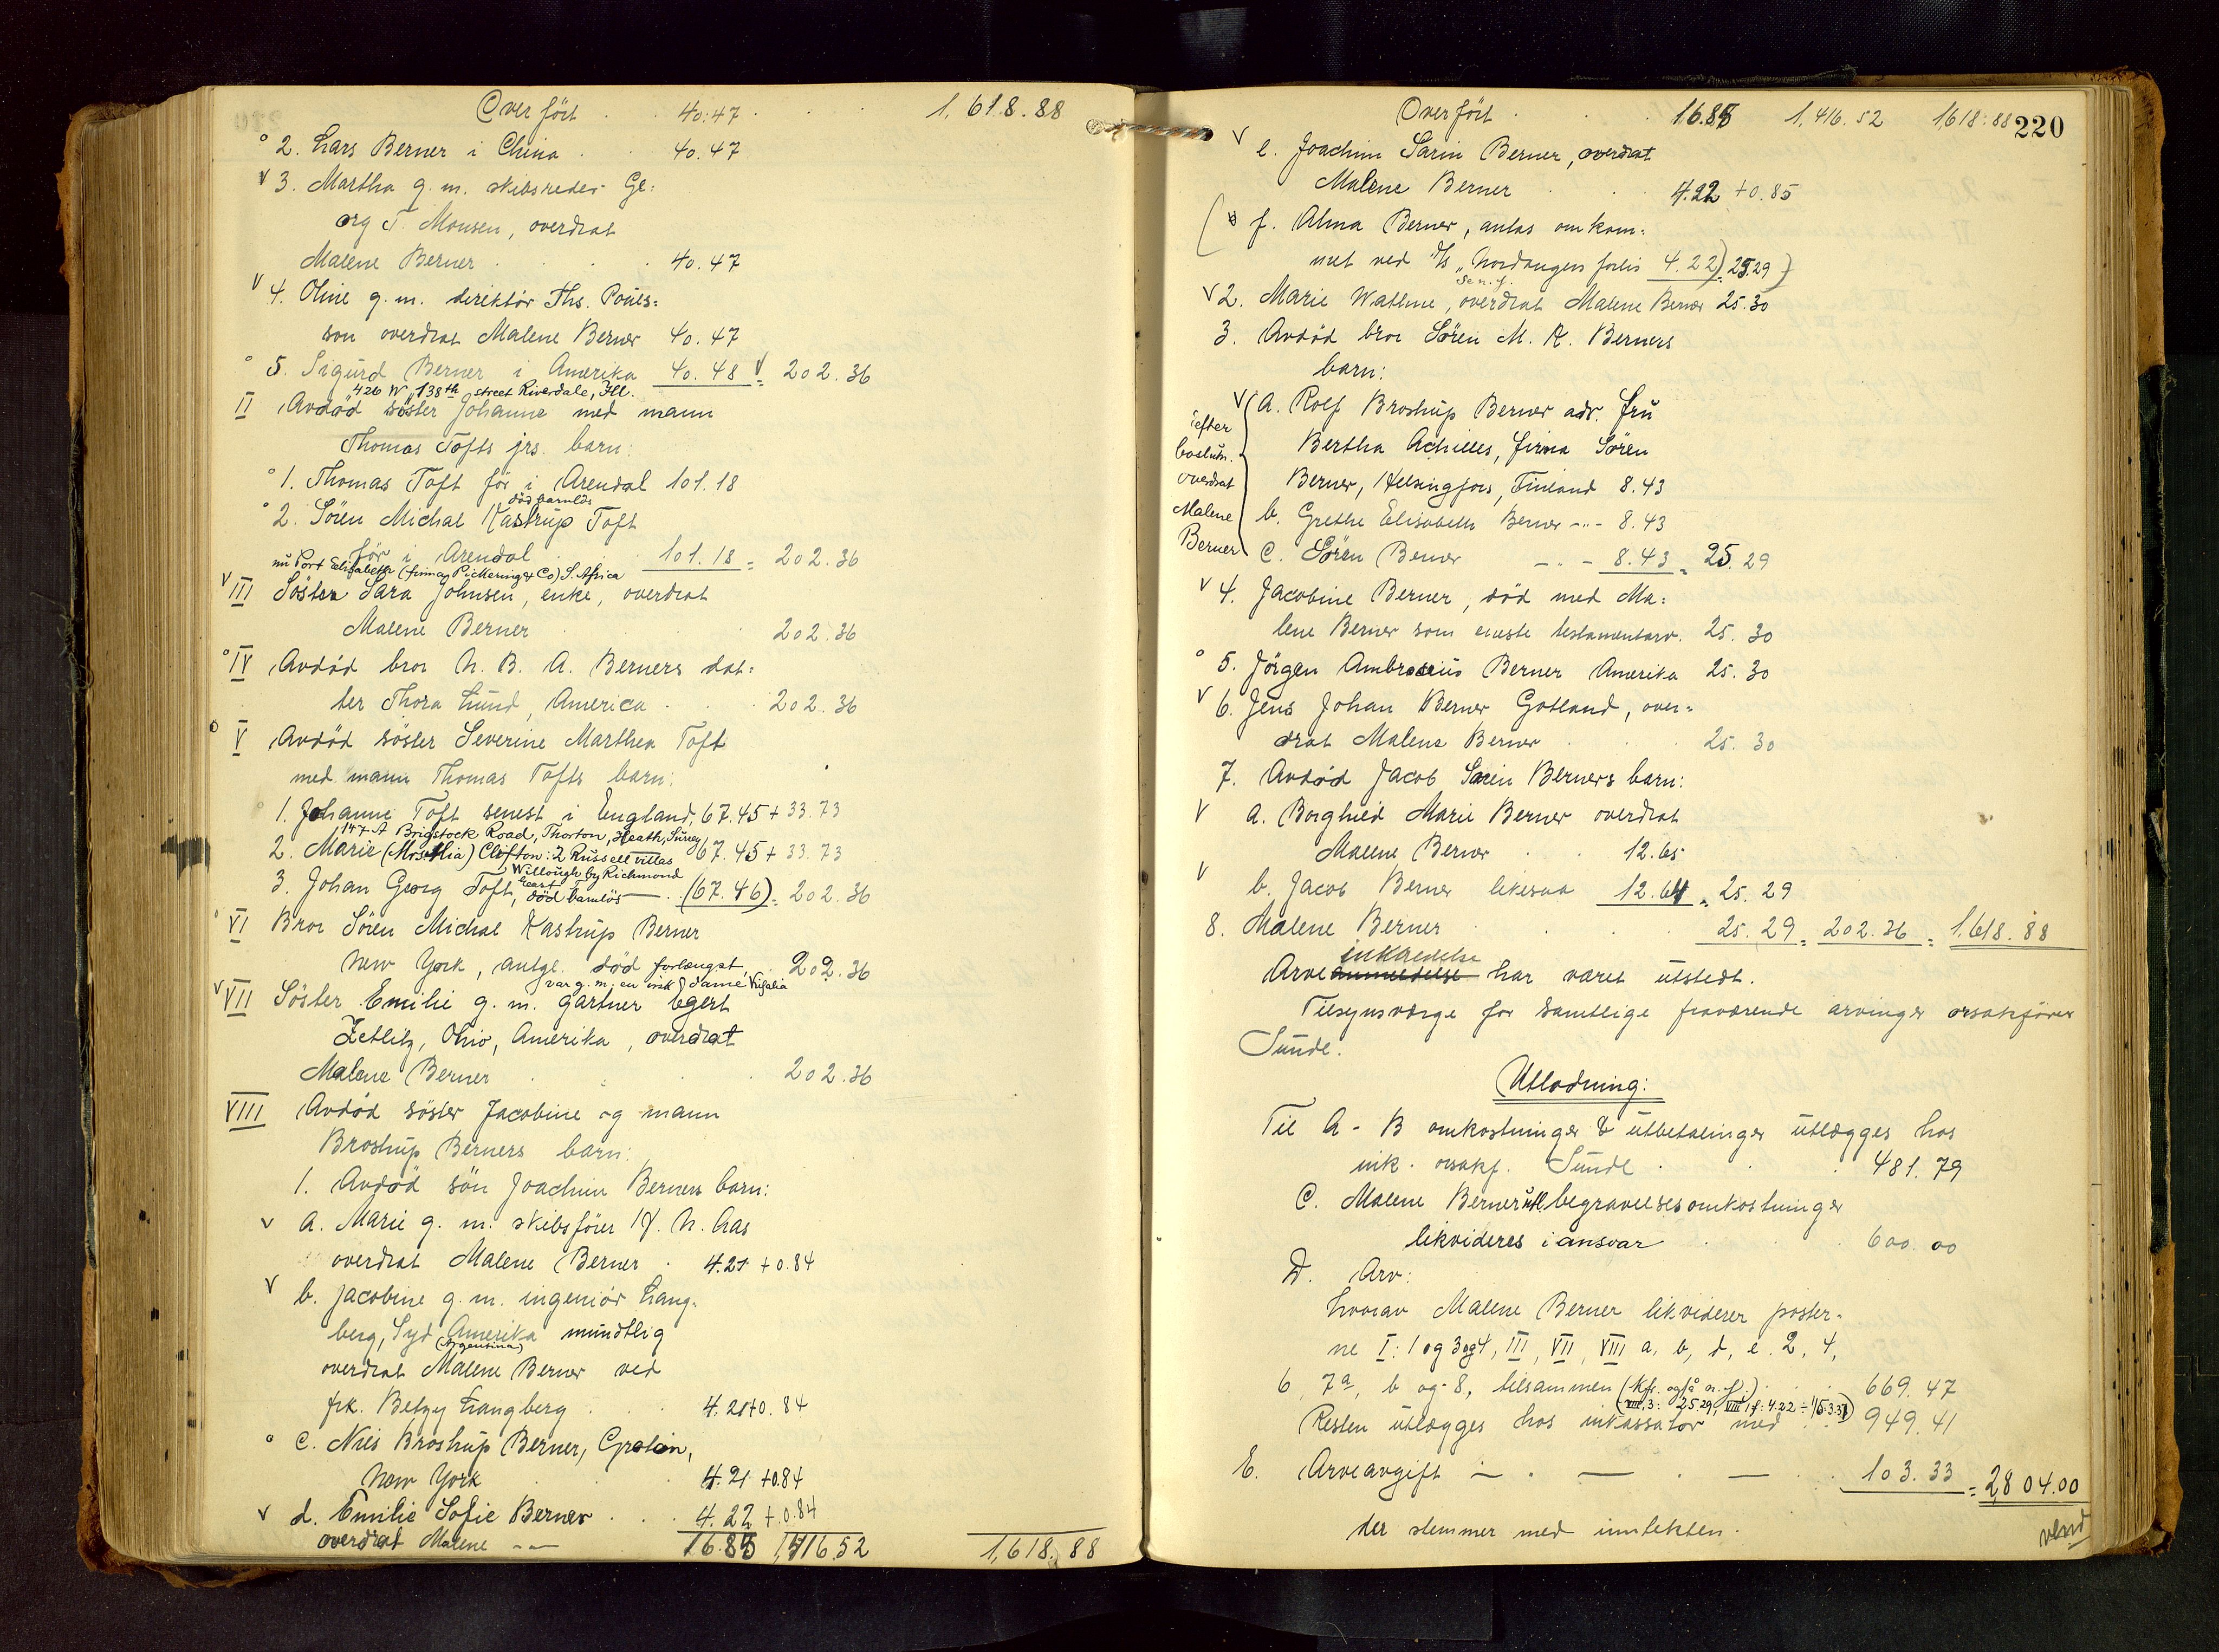 Overført 40.47 1,618.88
° 2. Lars Berner i China 40.47
v 3. Martha g. m. skibsreder Ge=
org T. Monsen, overdrat
Malene Berner 40.47
v 4. Oline g. m. direktör Ths. Poules=
son overdrat Malene Berner 40.47
° 5. Sigurd Berner i Amerika 40.48 v = 202.36
426 W. 138th street Riverdale, Ill.
II Avdöd söster Johanne med mann
Thomas Tofts jrs. barn:
° 1. Thomas Toft för i Arendal 101.18
död barnlös
° 2. Sören Michal Kastrup Toft
för i Arendal 101.18 = 202.36
nu Port Elizabeth (firma Pickering & Co) S. Africa
v III Söster Sara Johnsen, enke, overdrat
Malene Berner 202.36
° IV Avdöd bror N. B. A. Berners dat=
ter Thora Lund, America 202.36
° V Avdöd söster Severine Marthea Toft
med mann Thomas Tofts barn:
° 1. Johanne Toft senest i England, 67.45 + 33.73
147 A Brigstock Road, Thorton, Heath, Surrey
2. Marie (Mrs Mia) Clifton: 2 Russell villas 67.45 + 33.73
Willoughby Richmond
3. Johan Georg Toft, död barnlös (67.46) = 202.36
° VI Bror Sören Michal Kastrup Berner
New York, antgl. död forlængst 202.36
var g. m. en irsk dame
v VII Söster Emilie g. m. gartner Egert
Zetlitz, Ohio, Amerika, overdrat
Malene Berner 202.36
VIII Avdöd söster Jacobine og mann
Brostrup Berners barn:
1. Avdöd sön Joachim Berners barn:
v a. Marie g. m. skibsförer H. N. Aas
overdrat Malene Berner 4.21 + 0.84
v b. Jacobine g. m. ingeniör Lang=
berg, Syd Amerika mundtlig
(Argentina)
overdrat Malene Berner ved
frk. Betzy Langberg 4.21 + 0.84
° c. Niels Brostrup Berner,
New York 4.21 + 0.84
v d. Emilie Sofie Berner 4.22 + 0.84
overdrat Malene -"- 16.85 1,416.52 1,618.88
Overført 16.85 1,416.52 1,618.88 220
v e. Joachim Sarin Berner, overdrat
Malene Berner 4.22 + 0.85
f. Alma Berner, antas omkom=
met ved D/s "Nordangers forlis 4.22) = 25.29)
Se n. f.
v 2. Marie Wathne, overdrat Malene Berner 25.30
3. Avdöd bror Sören M. K. Berners
barn:
v a. Rolf Brostrup Berner adr. fru
Bertha Achilles, firma Sören
Berner, Helsingfors, Finland 8.43
b. Grethe Elisabeth Berner -"- 8.43
c. Sören Berner -"- 8.43 = 25.29
efter
overdrat
Malene
Berner
v 4. Jacobine Berner, död med Ma=
lene Berner som eneste testamentarv. 25.30
° 5. Jörgen Ambrosius Berner Amerika 25.30
v 6. Jens Johan Berner Gotland, over=
drat Malene Berner 25.30
7. Avdöd Jacob Sarin Berners barn:
v a. Borghild Marie Berner overdrat
Malene Berner 12.65
v b. Jacob Berner likesaa 12.64 = 25.29
8. Malene Berner 25.29 = 202.36 = 1,618.88
inkaldelse
Arveanmeldelse har været utstedt.
Tilsynsværge for samtlige fraværende arvinger orsakförer
Sunde.
Utlodning:
Til A - B omkostninger & utbetalinger utlægges hos
ink. orsakf. Sunde 481.79
C. Malene Berner utl. begravelsesomkostninger
likvideres i ansvar 600.00
D. Arv:
hvorav Malene Berner likviderer poster=
ne I: 1 og 3 og 4, III, VII, VIII a, b, d, e. 2, 4,
6, 7a, b og 8, tilsammen (kfr. også n. f.) 669.47
(VIII, 3: 25.29, VIII 1 f: 4.22 ÷
Resten utlægges hos inkassator med 949.41
E. Arveavgift — " — " — 103.33 = 2804.00
der stemmer med inntekten.
vend